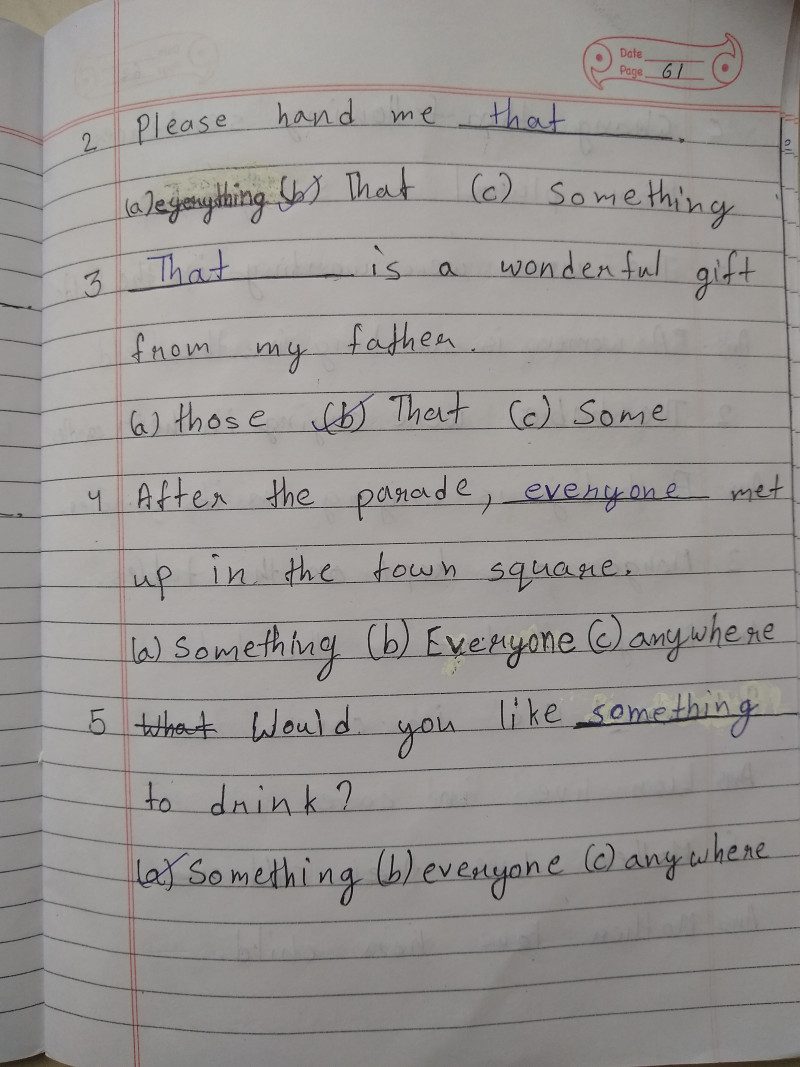 Date
Page 61
2 Please hand me that .
(a) everything (b) That (c) Something
3 That is a wonderful gift
from my father.
(a) those (b) That (c) Some
4 After the parade, everyone met
up in the town square.
(a) Something (b) Everyone (c) anywhere
5 What Would you like something
to drink?
(a) Something (b) everyone (c) anywhere